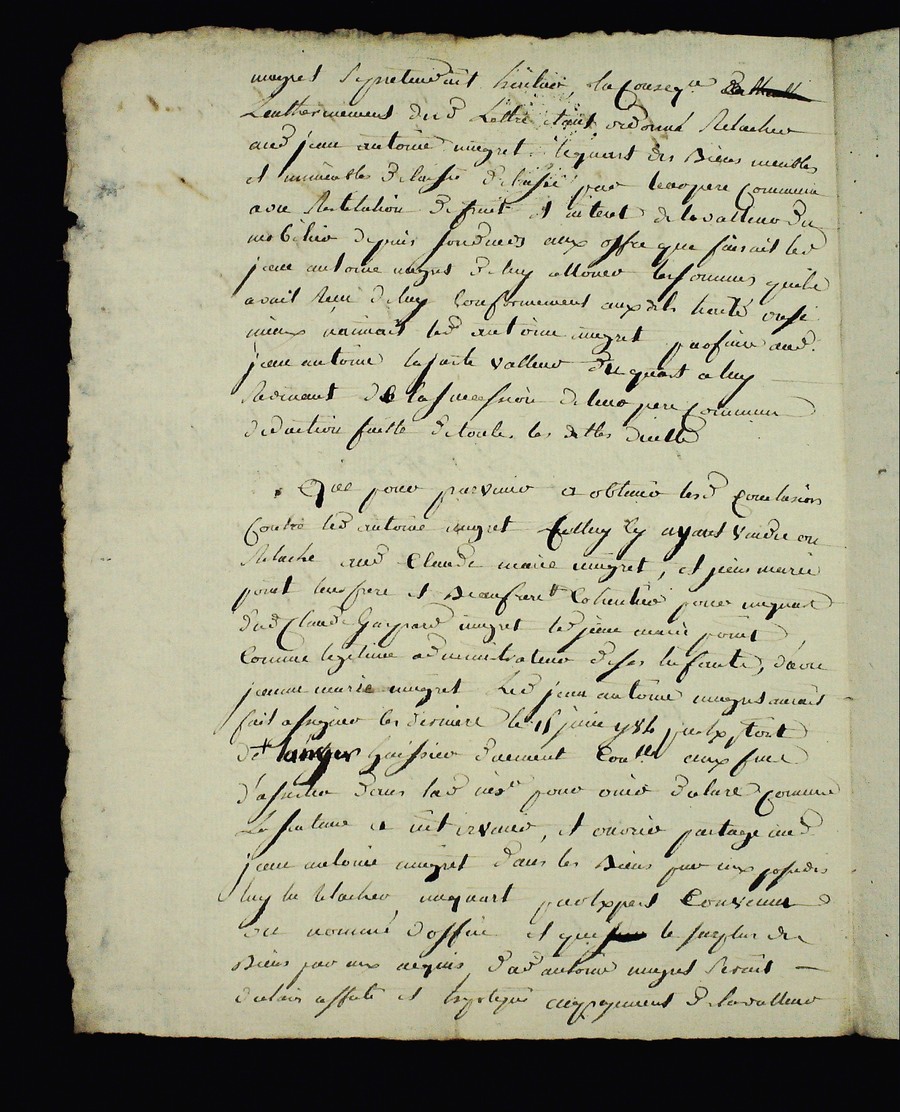 mugret pretendait heritier, la Conseq.ce
Lentherinement dud Lettre etant ordonné Relacher
aud jean antoine mugret lequart des Biens meubles
et immeubles delaissé par leur pere Commun
avec Restitution de fruit et interet de lavalleur du
mobilier depuis aux offre que faisait led
jean antoine mugret de luy allouer les sommes quil
avait Reçu de luy Conformement auxdits traité ou si
mieux n'aimait led antoine mugret aud
jean antoine la juste valleur du quart a luy
Revenant de la succession de leur pere Commun
deduction faitte de toute les dettes dicelle
Que pour parvenir a obtenir lesd Conclusions
Contre led antoine mugret Celluy cy ayant vendu ou
Relaché aud Claude marie mugret, et jean marie
point leur frere et Beaufrere Cohéritier pour un quart
dud Claude Gaspard mugret led jean marie point
Comme legitime administrateur de ses Enfants, d'avec
jeanne marie mugret Led jean antoine mugret aurait
fait assigner les derniers le 15 juin 1786 par Exploit
de Huissier duement Con.lle aux fins
d'assister dans lad ins.ce pour ouir declarer Commune
La sentence a intervenir, et ouvrir partage aud
jean antoine mugret dans les Biens par eux possedés
luy en Relacher un quart par Expert Convenus
ou nommé d'office et que le surplus des
Biens par eux acquis dud antoine mugret serait
declaré affecté et hypotequé au payement de la valleur